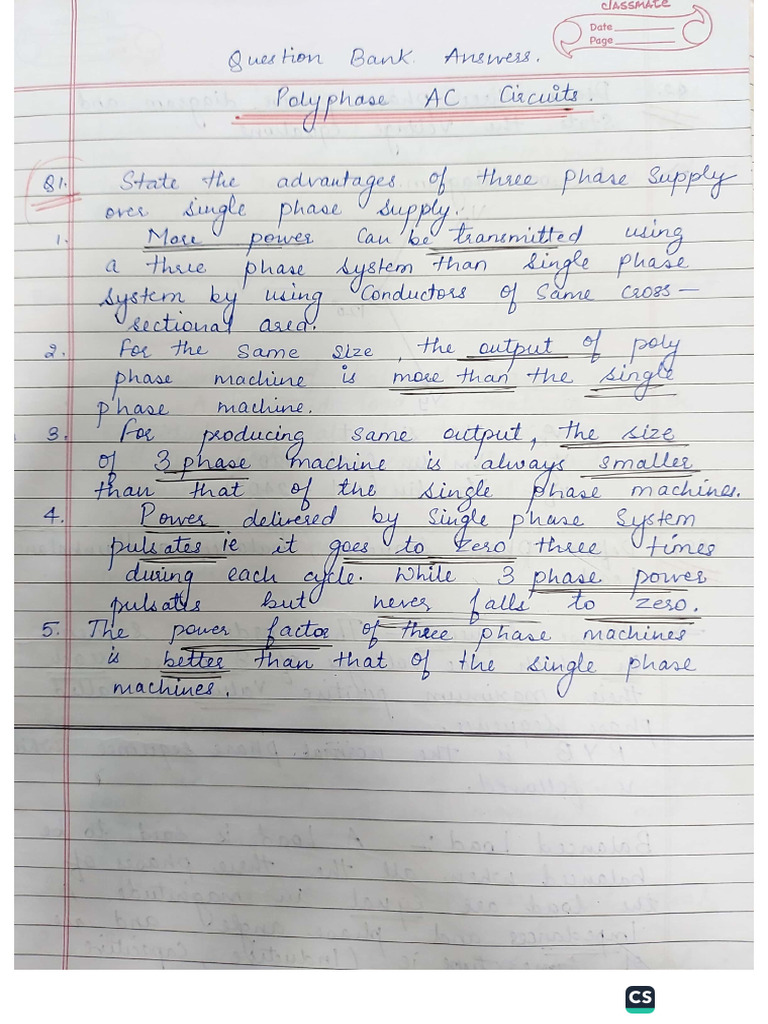 classmate
Date
Page
Question Bank Answers.
Polyphase AC Circuits.
Q1. State the advantages of three phase supply
over single phase supply.
1. More power can be transmitted using
a three phase system than single phase
system by using conductors of same cross-
sectional area.
2. For the same size, the output of poly
phase machine is more than the single
phase machine.
3. For producing same output, the size
of 3 phase machine is always smaller
than that of the single phase machines.
4. Power delivered by single phase system
pulsates ie it goes to zero three times
during each cycle. While 3 phase power
pulsates but never falls to zero.
5. The power factor of three phase machines
is better than that of the single phase
machines.
CS